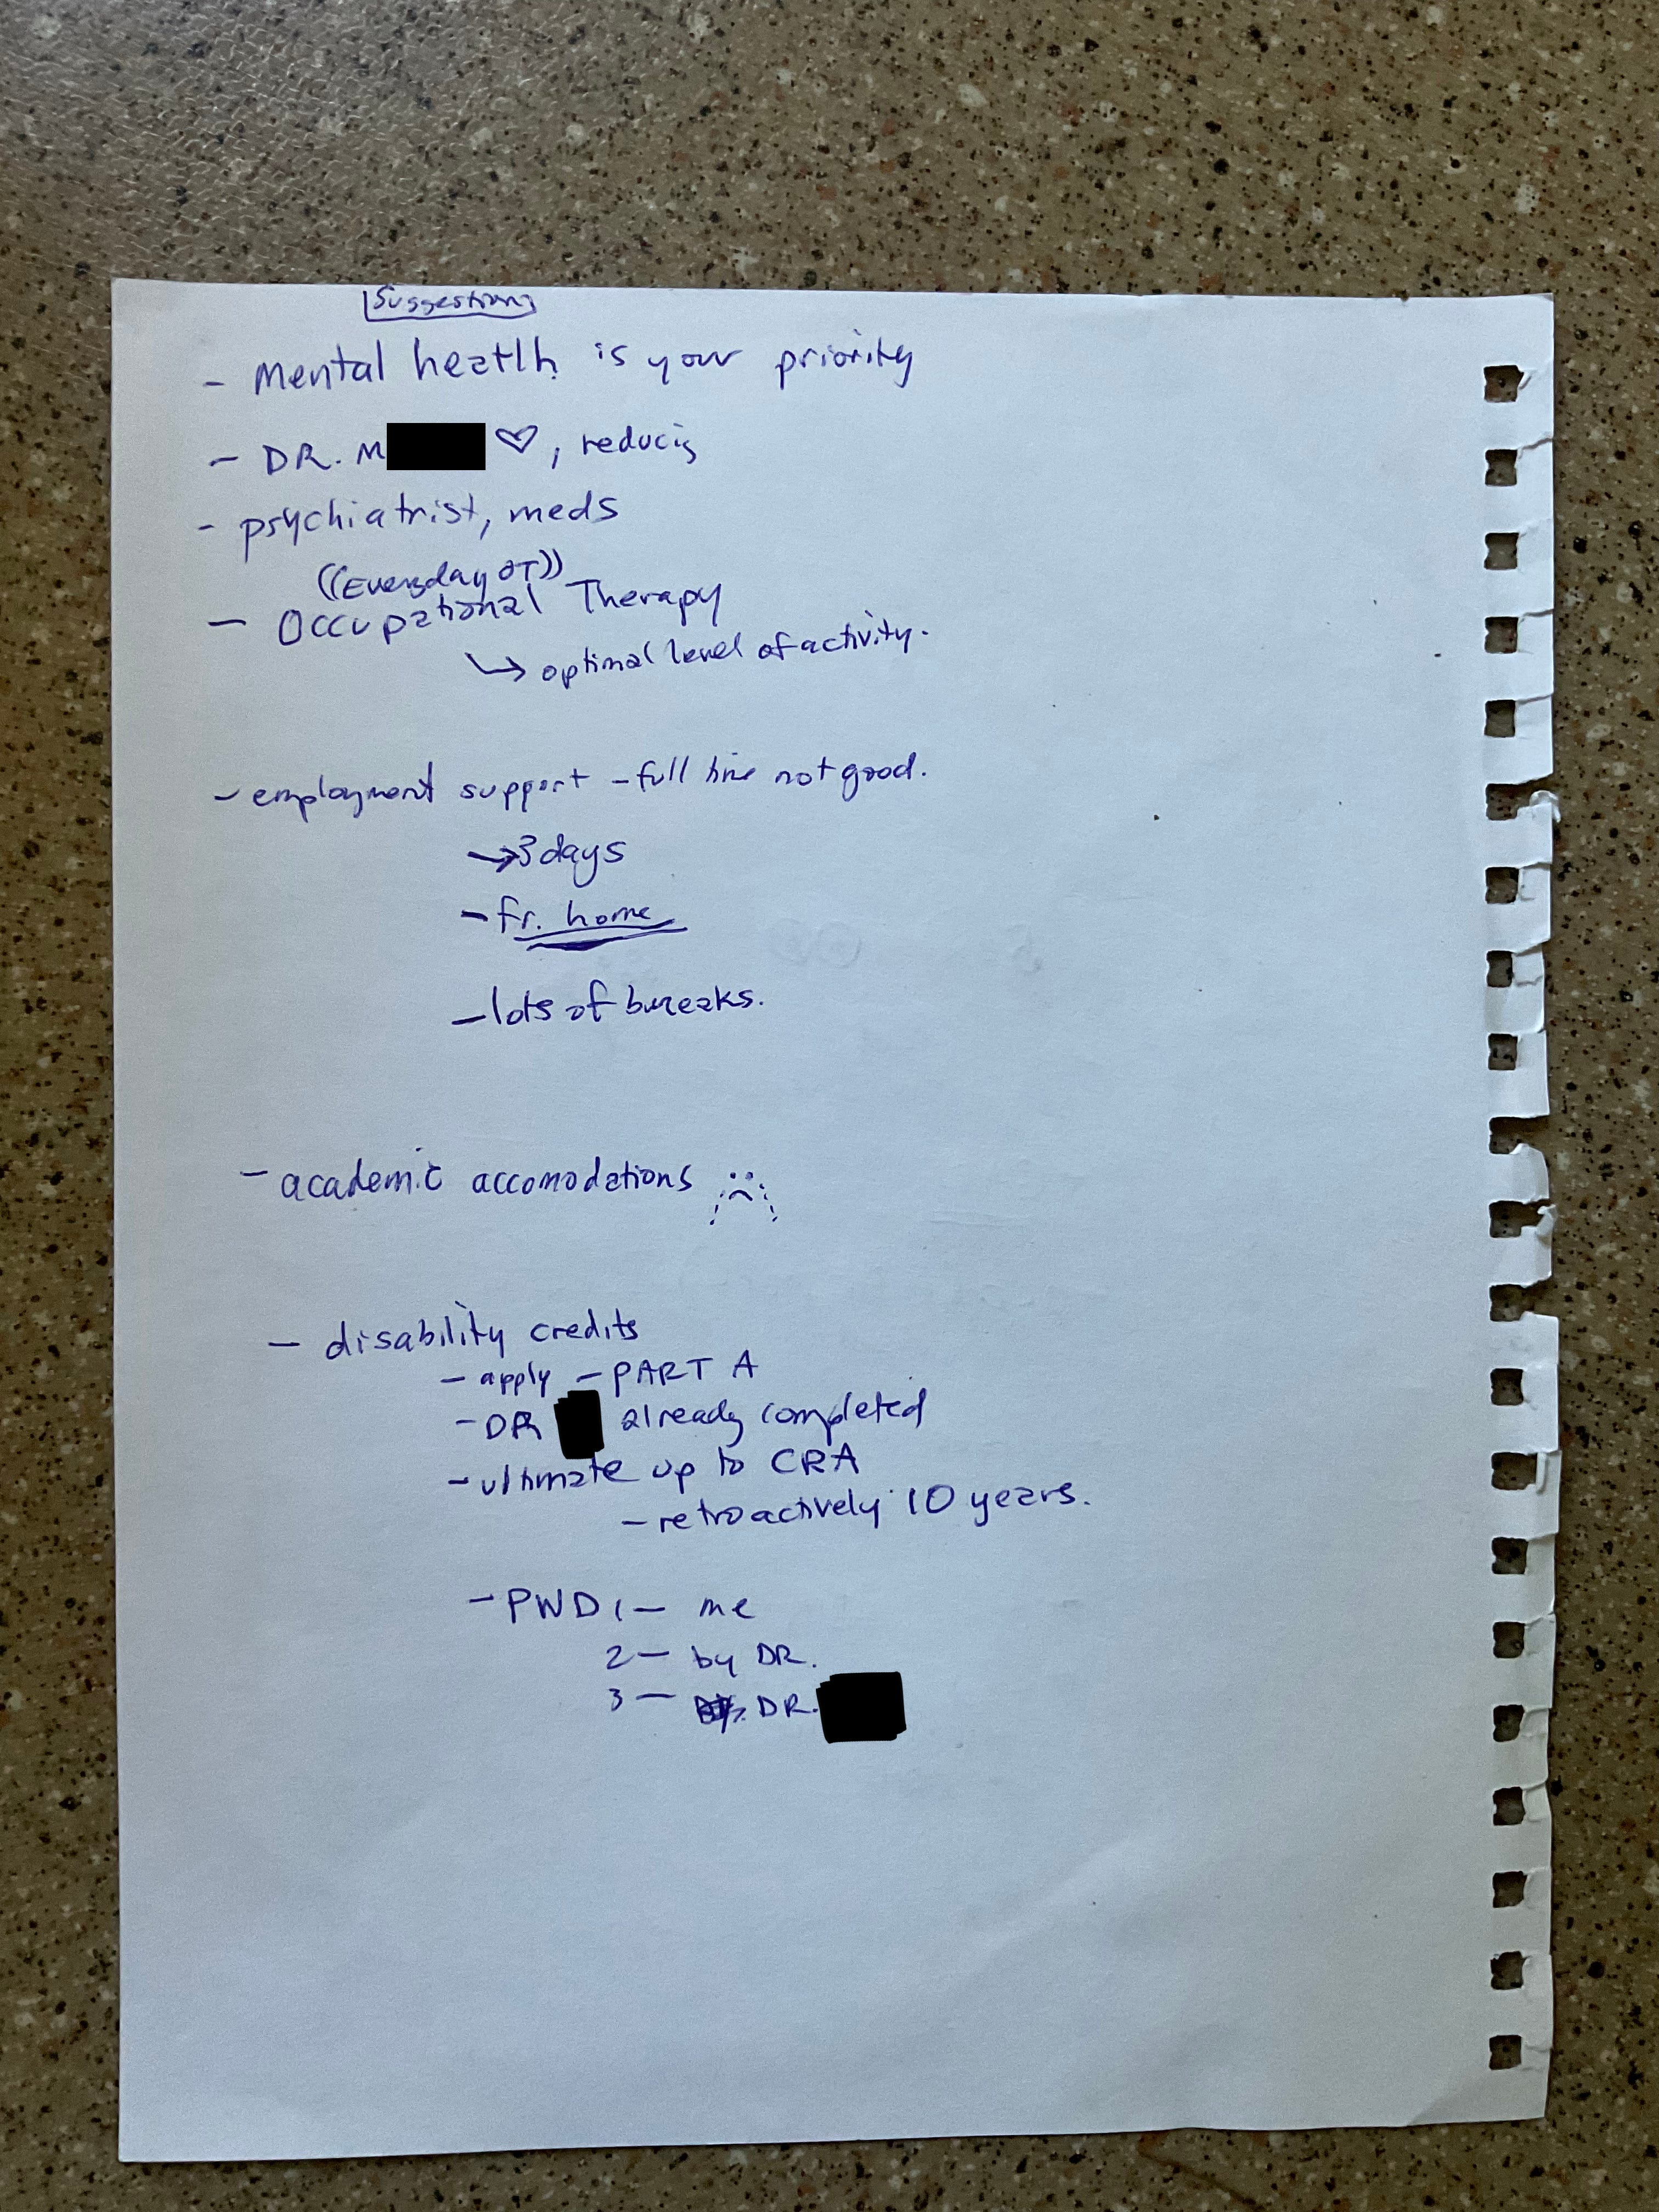 Suggestions
- Mental heatlh is your priority
- DR. M ♡, reducig
- psychiatrist, meds
((Everyday OT))
- Occupational Therapy
↳ optimal level of activity.
- employment support - full time not good.
→ 3 days
- fr. home
- lots of breaks.
- academic accomodations
- disability credits
- apply - PART A
- DR already completed
- ultimate up to CRA
- retroactively 10 years.
- PWD 1 - me
2 - by DR.
3 - DR.